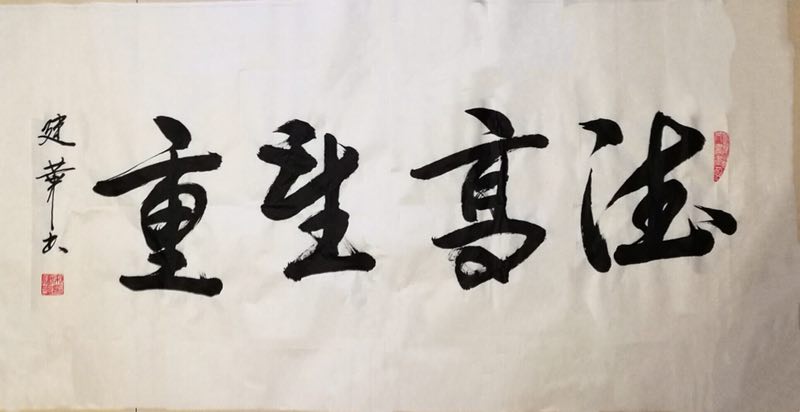 德高望重
建華书